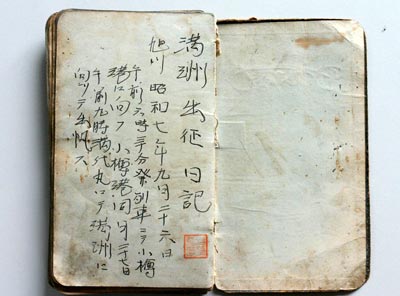 満洲出征日記
旭川 昭和七年九月二十六日
午前六時三十分発列車ニテ小樽
港に向フ 小樽港同月二十七日
午前九時 丸ニテ満洲に
向ツテ出帆ス